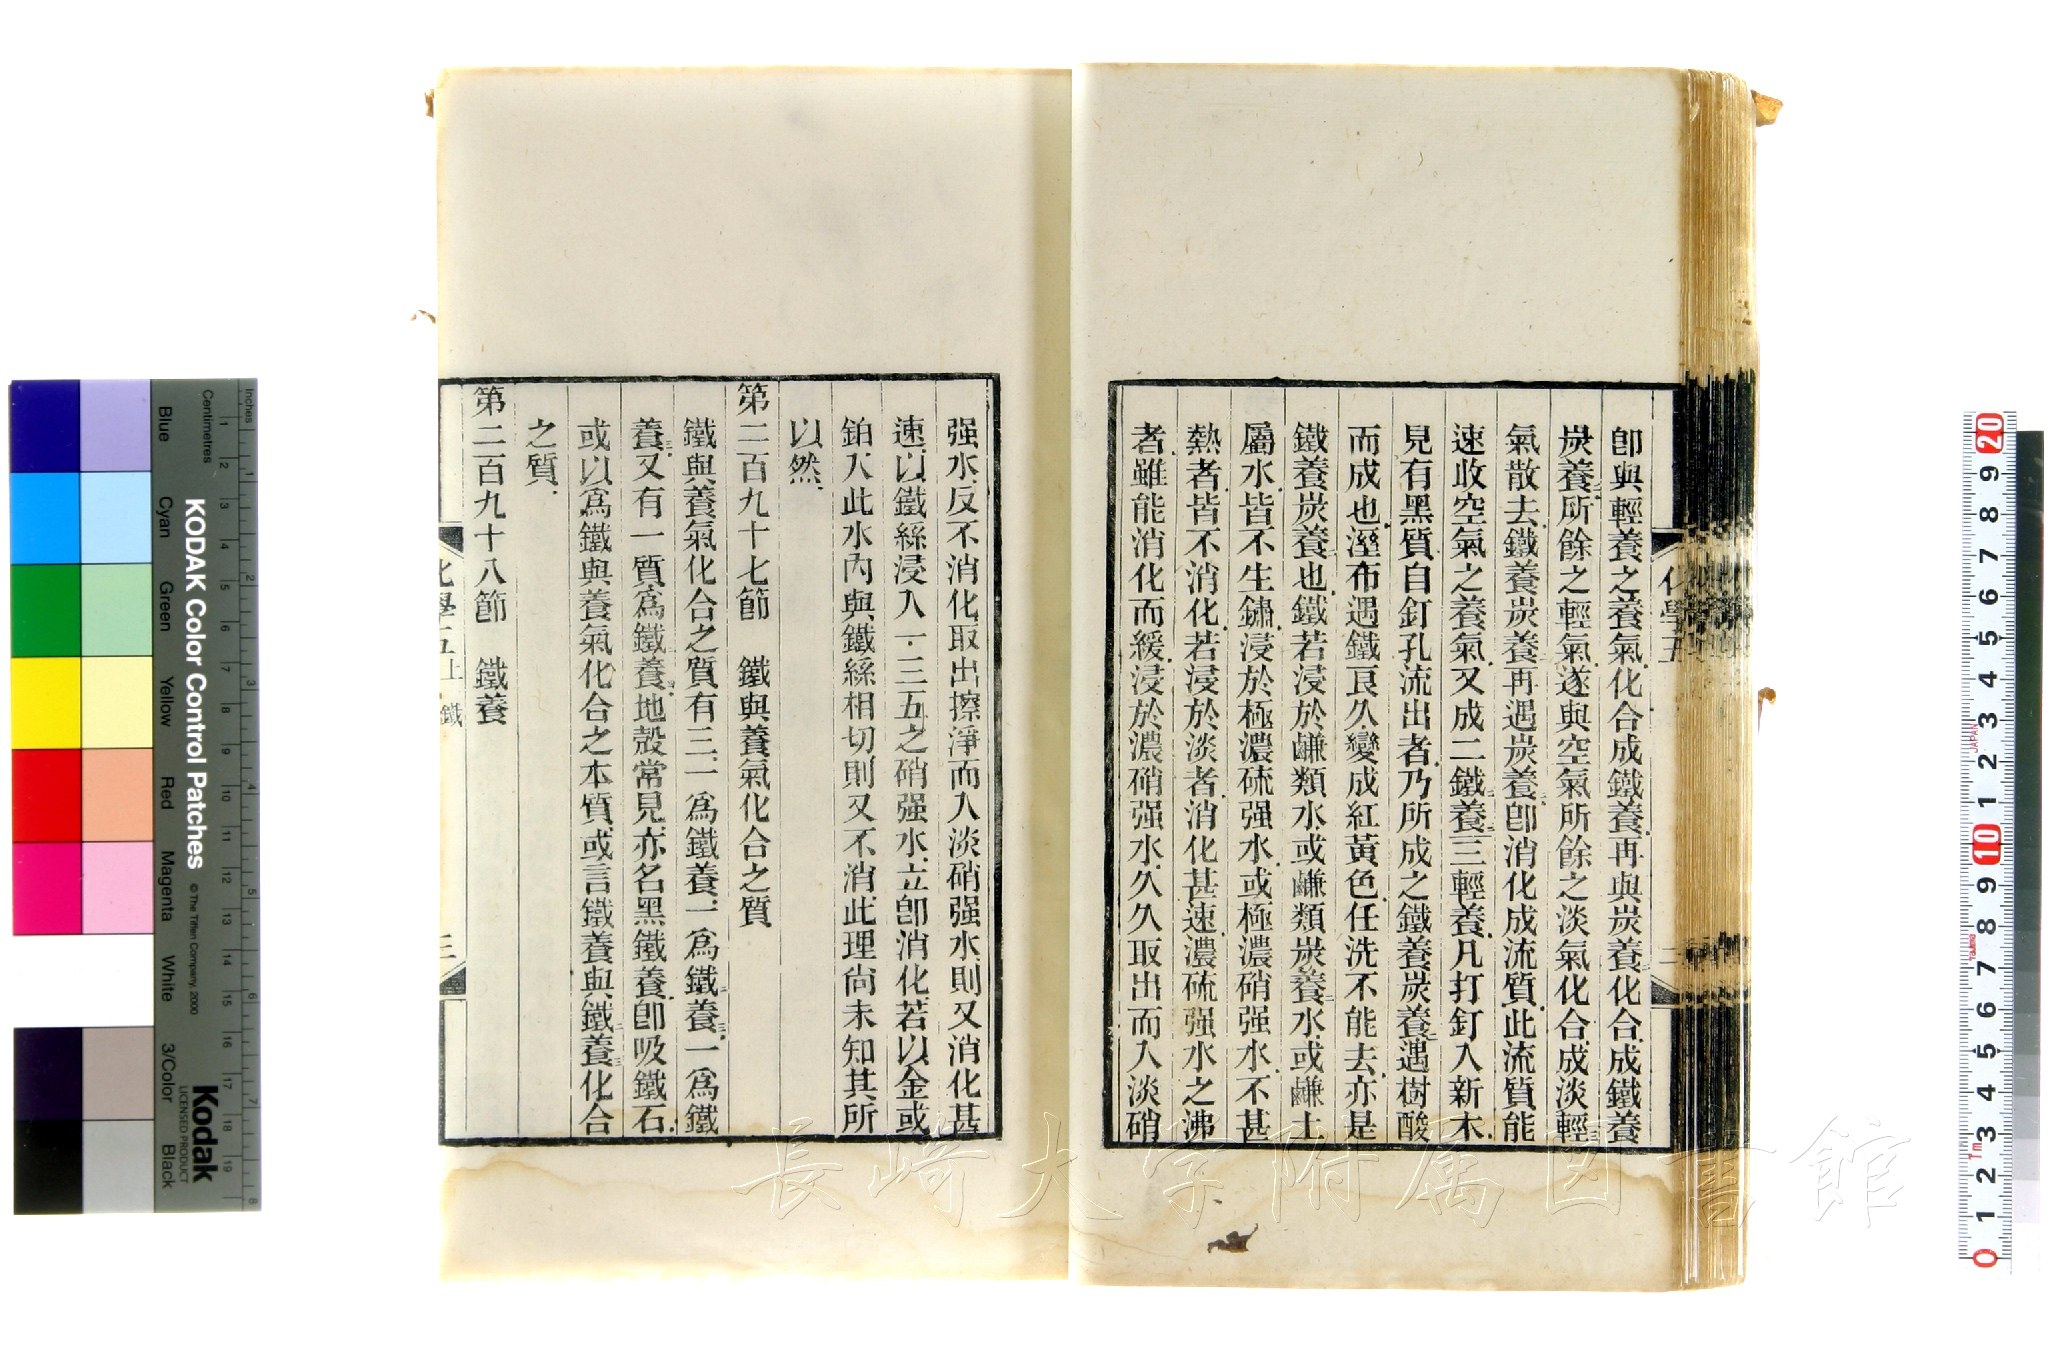 卽與輕養之養氣化合成鐵養再與炭養化合成鐵養
炭養所餘之輕氣遂與空氣所餘之淡氣化合成淡輕
氣散去鐵養炭養再遇炭養卽消化成流質此流質能
速收空氣之養氣又成二鐵養三輕養凡打釘入新木
見有黑質自釘孔流出者乃所成之鐵養炭養遇樹酸
而成也溼布遇鐵良久變成紅黃色任洗不能去亦是
鐵養炭養也鐵若浸於鹻類水或鹻類炭養水或鹻土
屬水皆不生鏽浸於極濃硫强水或極濃硝强水不甚
熱者皆不消化若浸於淡者消化甚速濃硫强水之沸
者雖能消化而緩浸於濃硝强水久久取出而入淡硝
强水反不消化取出擦淨而入淡硝强水則又消化甚
速以鐵絲浸入一·三五之硝强水立卽消化若以金或
鉑入此水內與鐵絲相切則又不消此理尙未知其所
以然
第二百九十七節 鐵與養氣化合之質
鐵與養氣化合之質有三一爲鐵養一爲鐵二養三一爲鐵
養三又有一質爲鐵三養四地殼常見亦名黑鐵養卽吸鐵石
或以爲鐵與養氣化合之本質或言鐵養與鐵二養三化合
之質
第二百九十八節 鐵養
化學五上 鐵
三
化學五
長崎大学附属図書館
KODAK Color Control Patches
© The Tiffen Company, 2000
Kodak
LICENSED PRODUCT
Blue
Cyan
Green
Yellow
Red
Magenta
White
3/Color
Black
Inches
Centimetres